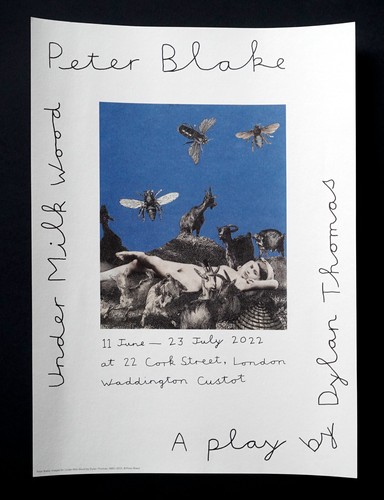 Peter Blake
Under Milk Wood
11 June — 23 July 2022
at 22 Cork Street, London
Waddington Custot
A play by Dylan Thomas